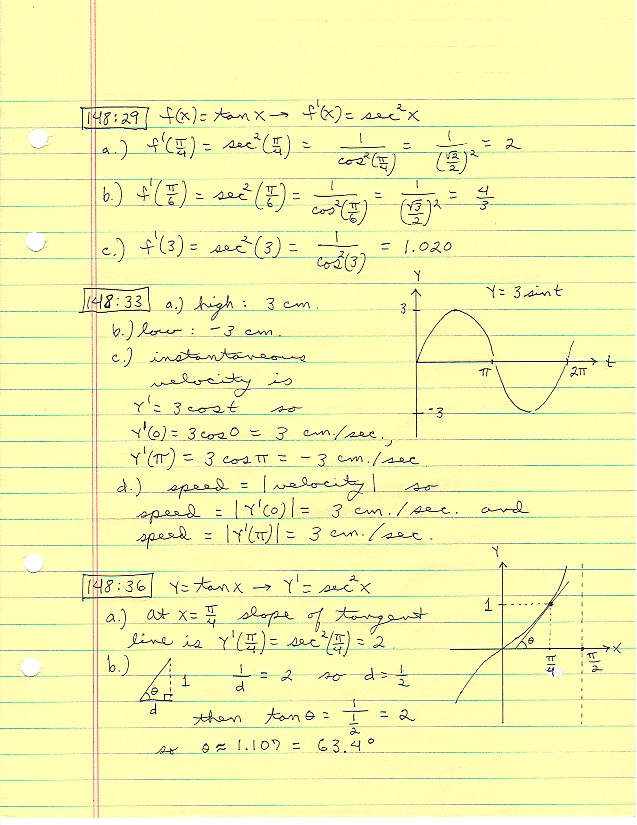 148:29 f(x) = tan x → f'(x) = sec²x
a.) f'(π/4) = sec²(π/4) = 1/cos²(π/4) = 1/(√2/2)² = 2
b.) f'(π/6) = sec²(π/6) = 1/cos²(π/6) = 1/(√3/2)² = 4/3
c.) f'(3) = sec²(3) = 1/cos²(3) = 1.020
148:33 a.) high : 3 cm.
b.) low : -3 cm.
c.) instantaneous
velocity is
Y' = 3 cos t so
Y'(0) = 3 cos 0 = 3 cm/sec.,
Y'(π) = 3 cos π = -3 cm./sec.
Y
Y = 3 sin t
3
π
2π
t
-3
d.) speed = |velocity| so
speed = |Y'(0)| = 3 cm./sec. and
speed = |Y'(π)| = 3 cm./sec.
148:36 Y = tan x → Y' = sec²x
a.) at x = π/4 slope of tangent
line is Y'(π/4) = sec²(π/4) = 2.
b.) θ 1 d 1/d = 2 so d = 1/2
then tan θ = 1/(1/2) = 2
so θ ≈ 1.107 = 63.4°
Y
1
θ
π/4
π/2
X